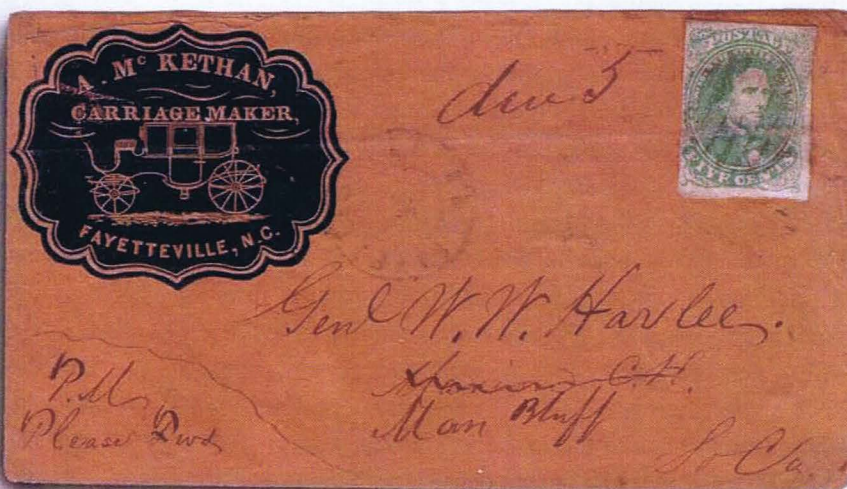 A. Mc KETHAN,
CARRIAGE MAKER,
FAYETTEVILLE, N.C.
due 5
POSTAGE
FIVE CENTS
Genl W. W. Harlee.
Marion C.H.
Mars Bluff
So Ca.
P.M.
Please Fwd